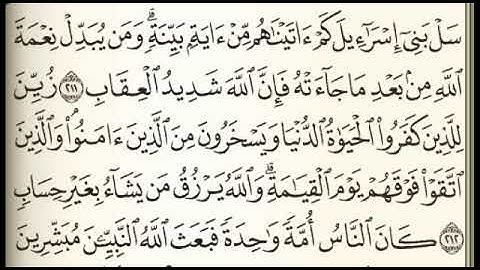 سَلْ بَنِىٓ إِسْرَٰٓءِيلَ كَمْ ءَاتَيْنَٰهُم مِّنْ ءَايَةٍۭ بَيِّنَةٍۗ وَمَن يُبَدِّلْ نِعْمَةَ
ٱللَّهِ مِنۢ بَعْدِ مَا جَآءَتْهُ فَإِنَّ ٱللَّهَ شَدِيدُ ٱلْعِقَابِ ٢١١ زُيِّنَ
لِلَّذِينَ كَفَرُوا۟ ٱلْحَيَوٰةُ ٱلدُّنْيَا وَيَسْخَرُونَ مِنَ ٱلَّذِينَ ءَامَنُوا۟ۘ وَٱلَّذِينَ
ٱتَّقَوْا۟ فَوْقَهُمْ يَوْمَ ٱلْقِيَٰمَةِۗ وَٱللَّهُ يَرْزُقُ مَن يَشَآءُ بِغَيْرِ حِسَابٍ
٢١٢ كَانَ ٱلنَّاسُ أُمَّةً وَٰحِدَةً فَبَعَثَ ٱللَّهُ ٱلنَّبِيِّۦنَ مُبَشِّرِينَ